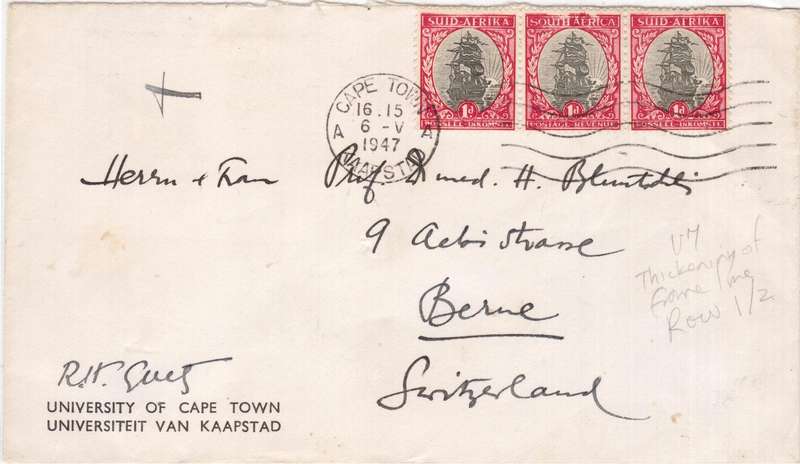 SUID-AFRIKA SOUTH AFRICA SUID-AFRIKA
1d 1d 1d
POSSEËL-INKOMSTE POSTAGE-REVENUE POSSEËL-INKOMSTE
CAPE TOWN
16.15
A 6-V A
1947
KAAPSTAD
Herrn + Frau Prof. D med. H. Bluntschli
9 Aebistrasse
Berne
Switzerland
V7
Thickening of
frame line
Row 1/2
R.H. Goetz
UNIVERSITY OF CAPE TOWN
UNIVERSITEIT VAN KAAPSTAD